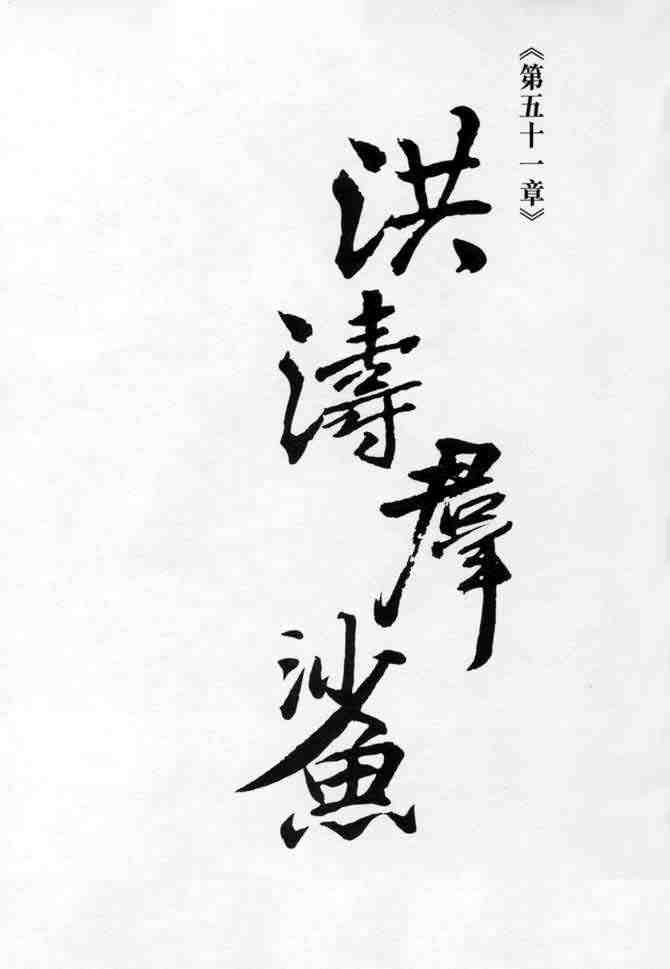 《第五十一章》
洪濤羣鯊